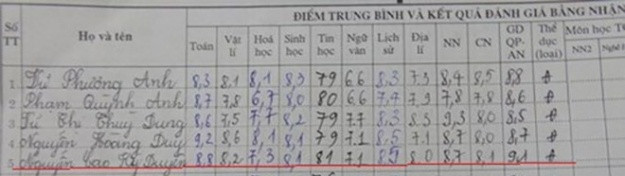 ĐIỂM TRUNG BÌNH VÀ KẾT QUẢ ĐÁNH GIÁ BẰNG NHẬN
Số TT Họ và tên Toán Vật lí Hoá học Sinh học Tin học Ngữ văn Lịch sử Địa lí NN CN GD QP-AN Thể dục (loại) Môn học
NN2
1 Từ Phương Anh 8,3 8,1 8,1 8,3 79 66 8,3 7,3 8,4 8,5 8,8 đ
2 Phạm Quỳnh Anh 8,7 7,8 6,7 8,0 80 66 7,4 7,3 7,8 7,8 8,6 đ
3 Từ Thị Thuỳ Dung 8,6 7,5 7,7 8,2 79 77 8,3 8,3 9,3 8,0 8,5 đ
4 Nguyễn Hoàng Duy 9,2 8,6 8,1 8,1 79 71 8,5 7,1 8,7 8,0 8,7 đ
5 Nguyễn Cao Kỳ Duyên 8,8 8,2 7,3 8,1 81 71 8,5 8,0 8,7 8,1 9,1 đ